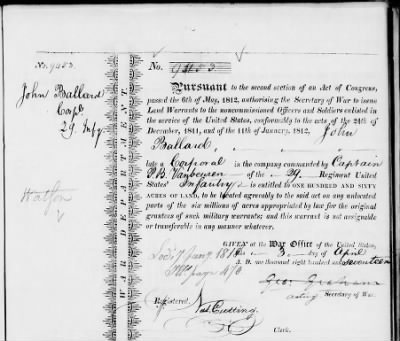 No. 9453.
John Ballard
Corpl
29. Infy
Watson
WAR DEPARTMENT.
No. 9453
Pursuant to the second section of an Act of Congress,
passed the 6th of May, 1812, authorising the Secretary of War to issue
Land Warrants to the noncommissioned Officers and Soldiers enlisted in
the service of the United States, conformably to the acts of the 24th of
December, 1811, and of the 11th of January, 1812, John
Ballard,
late a Corporal in the company commanded by Captain
P.B. Vanbeuren of the 29 Regiment United
States' Infantry is entitled to ONE HUNDRED AND SIXTY
ACRES OF LAND, to be located agreeably to the said act on any unlocated
parts of the six millions of acres appropriated by law for the original
grantees of such military warrants; and this warrant is not assignable
or transferable in any manner whatever.
GIVEN at the War Office of the United States,
this 3 day of April
A. D. one thousand eight hundred and seventeen
Geo: Graham
acting Secretary of War.
Locd 7 Jany 1818
page 470
Registered. Nat Cutting.
Clerk.